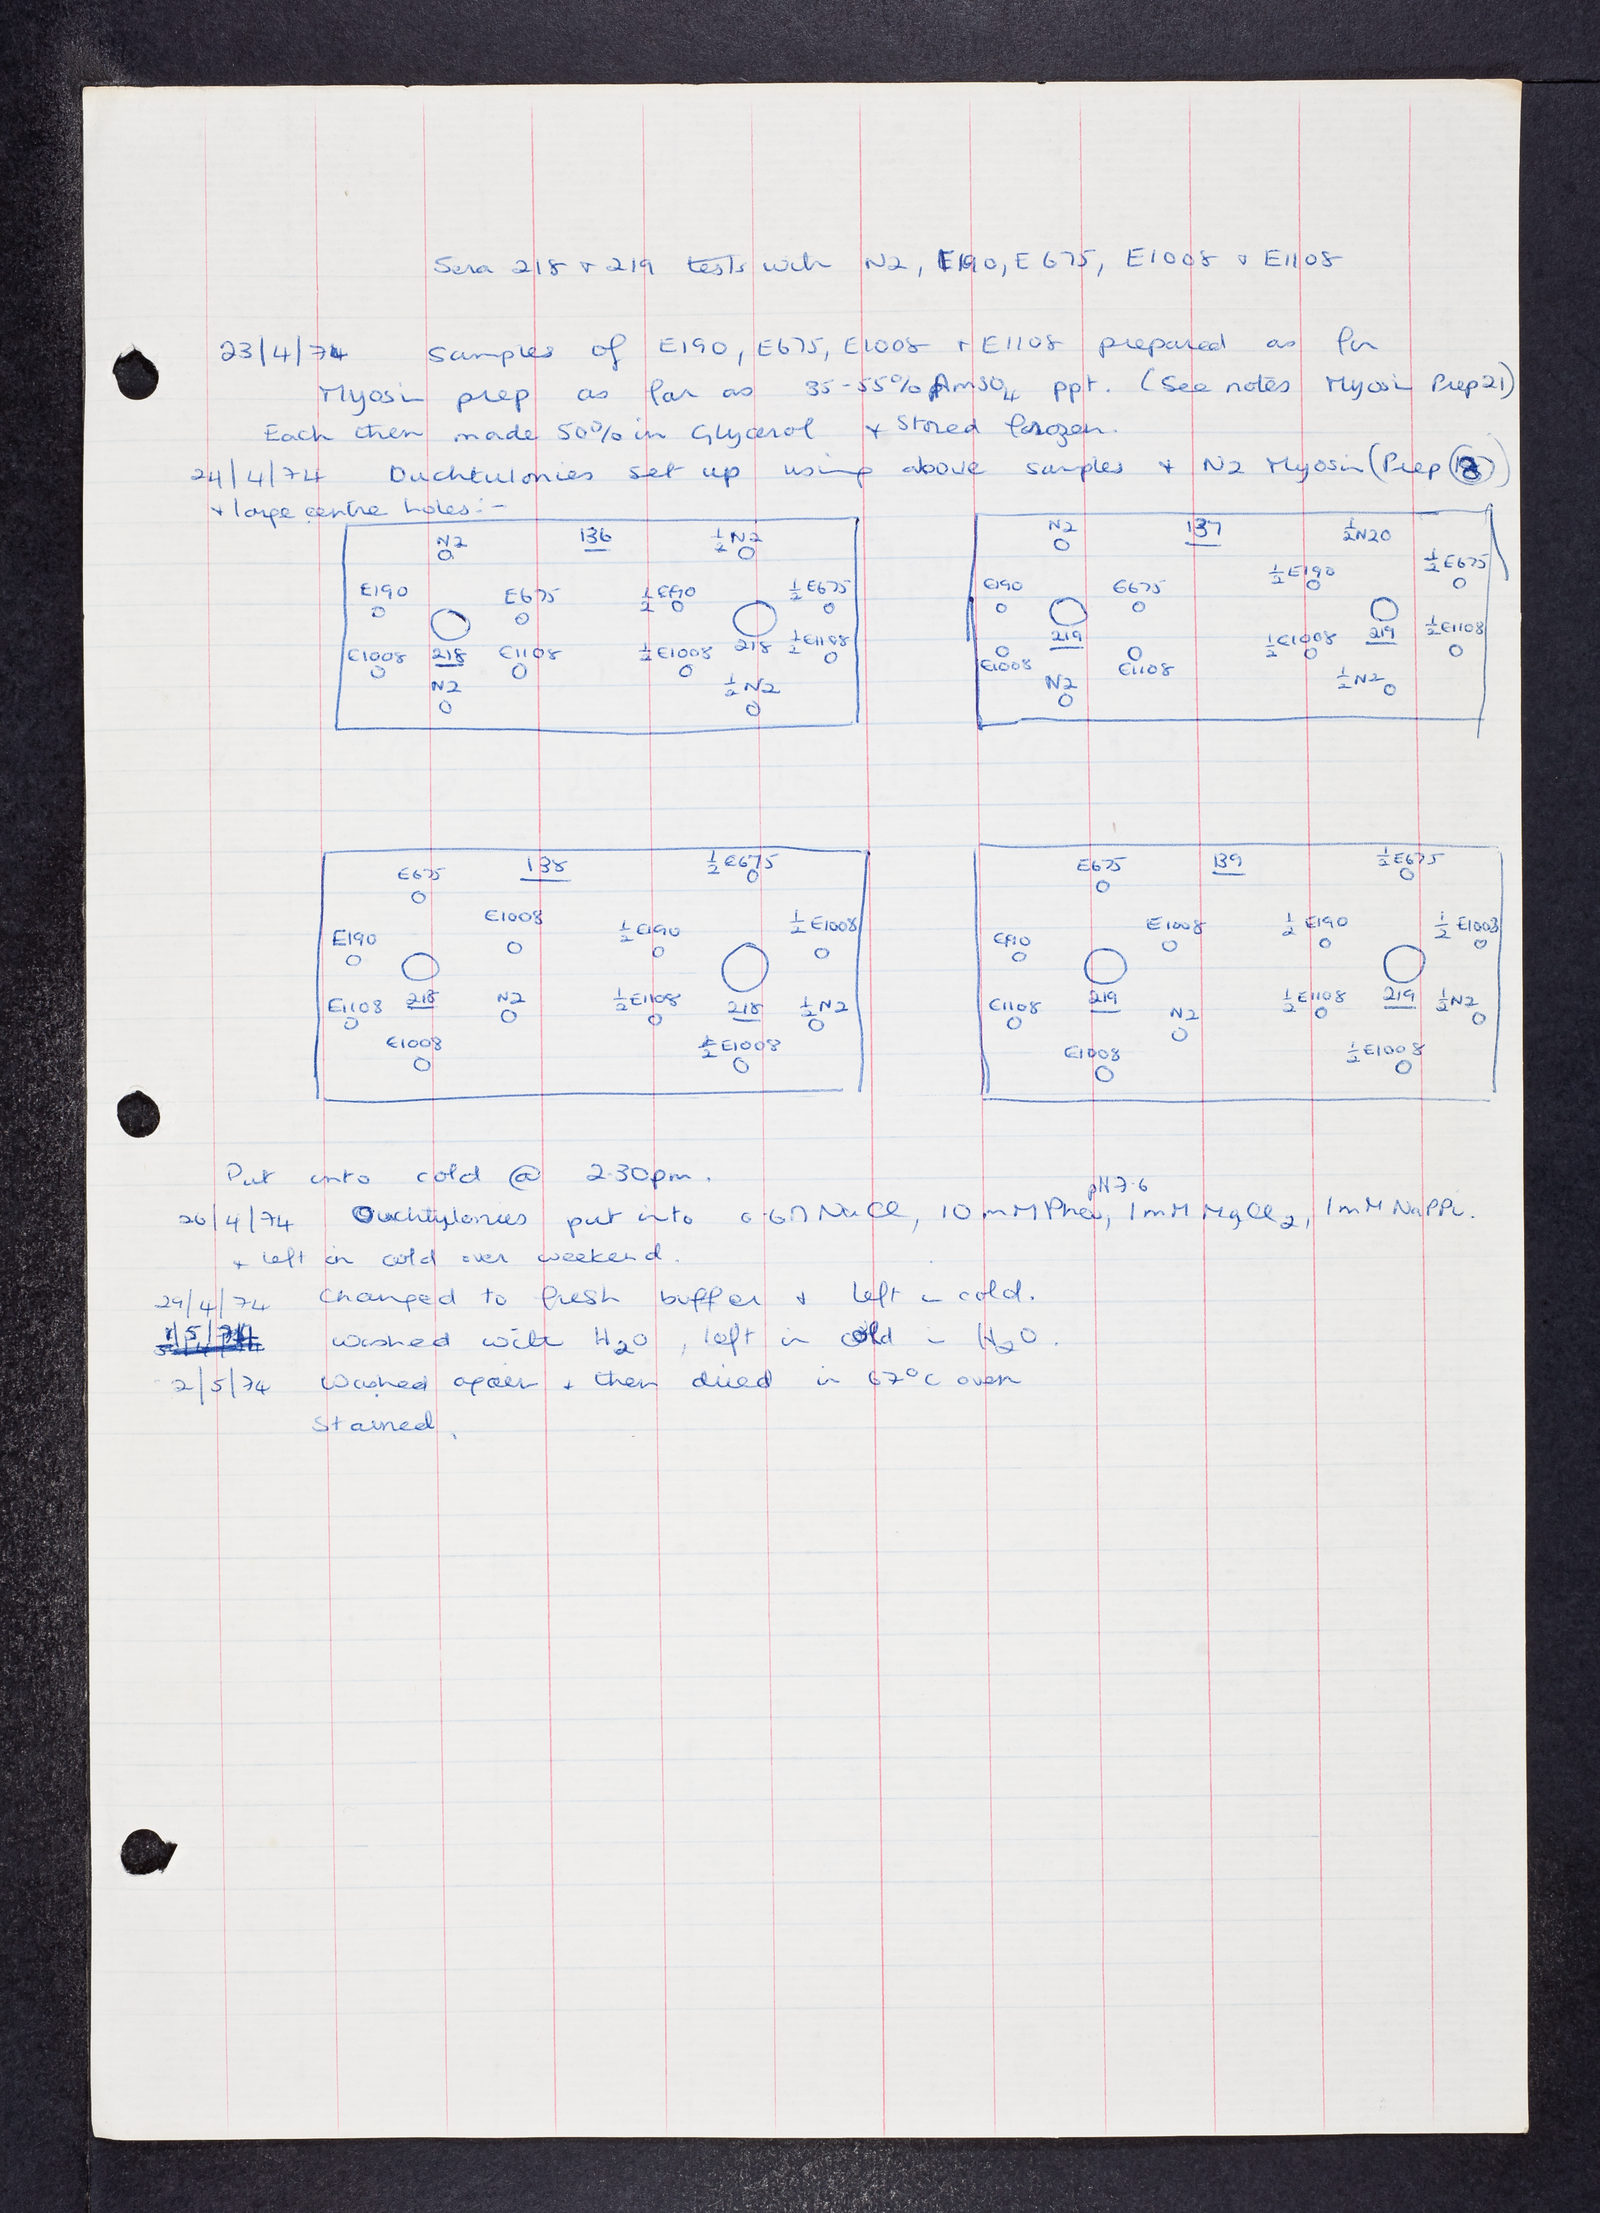 Sera 218 + 219 tests with N2, E190, E675, E1008 + E1108
23/4/74 Samples of E190, E675, E1008 + E1108 prepared as for
Myosin prep as far as 35-55% AmSO4 ppt. (See notes Myosin Prep 21)
Each then made 50% in Glycerol + Stored frozen.
24/4/74 Ouchtulonies set up using above samples + N2 Myosin (Prep 18)
+ large centre holes:-
N2 136 ½ N2
E190 E675 ½ E190 ½ E675
E1008 218 E1108 ½ E1008 218 ½ E1108
N2 ½ N2
N2 137 ½ N2
E190 E675 ½ E190 ½ E675
E1008 219 E1108 ½ E1008 219 ½ E1108
N2 ½ N2
E675 138 ½ E675
E190 E1008 ½ E190 ½ E1008
E1108 218 N2 ½ E1108 218 ½ N2
E1008 ½ E1008
E675 139 ½ E675
E190 E1008 ½ E190 ½ E1008
E1108 219 N2 ½ E1108 219 ½ N2
E1008 ½ E1008
Put into cold @ 2.30pm.
pH 7.6
26/4/74 Ouchtylonies put into 0.6M NaCl, 10 mM Phos, 1mM MgCl2, 1mM NaPPi.
+ left in cold over weekend.
29/4/74 Changed to fresh buffer + left in cold.
1/5/74 Washed with H2O, left in cold in H2O.
2/5/74 Washed again + then dried in 67°C oven
Stained.